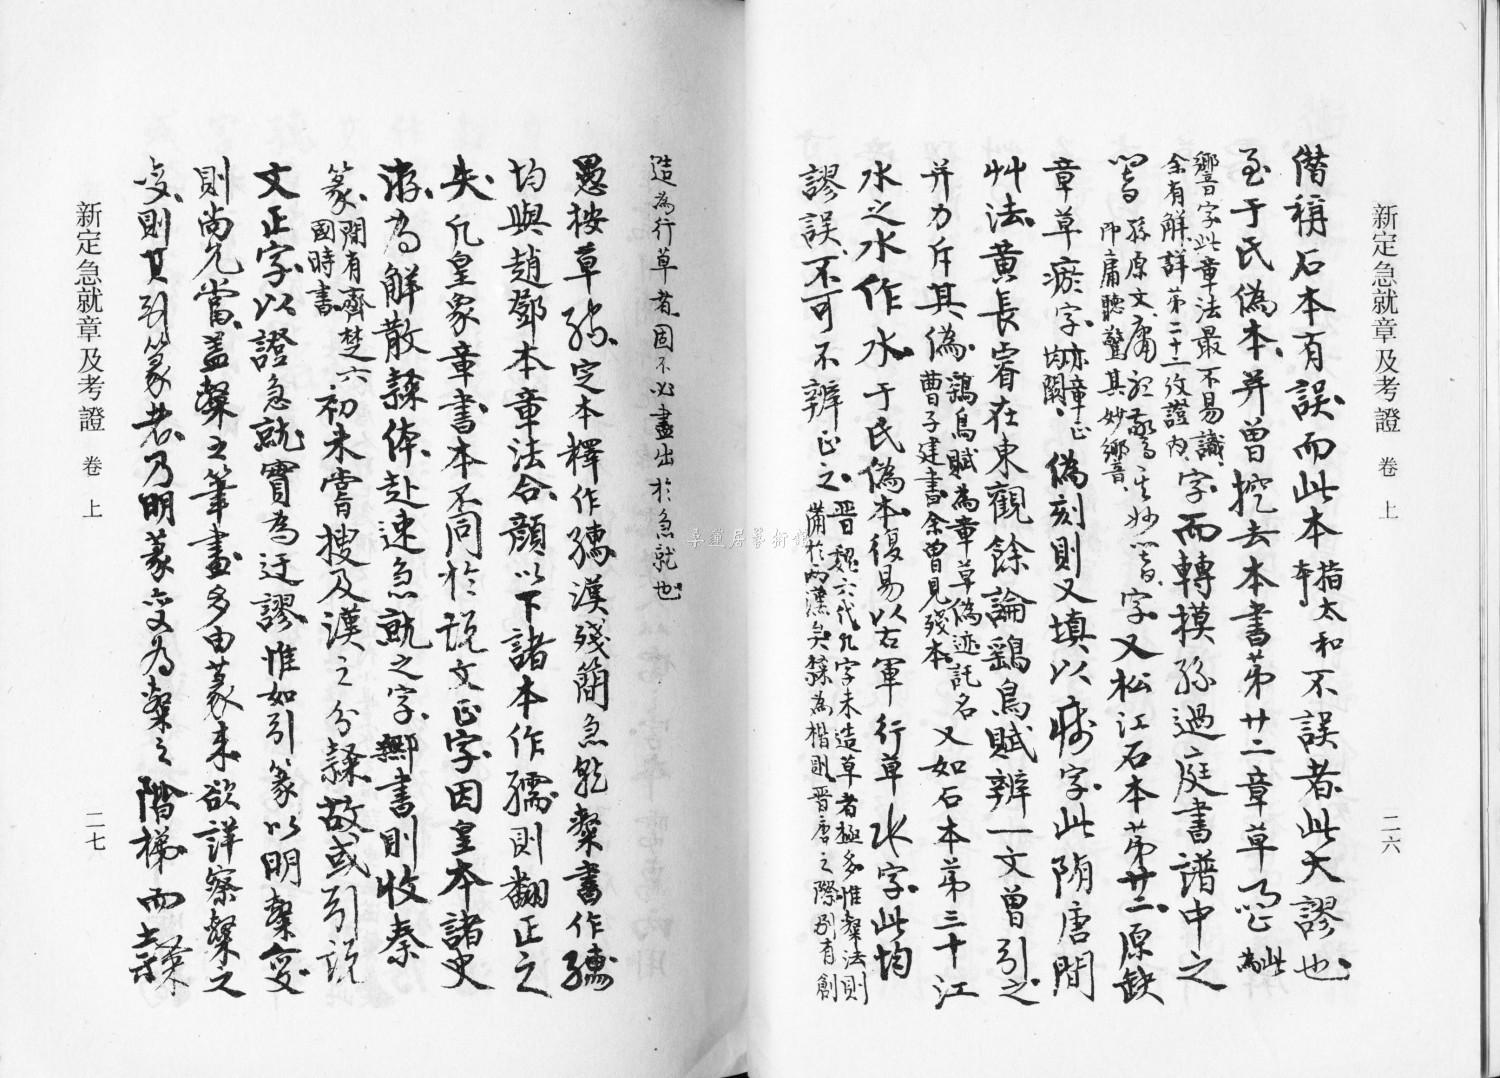 新定急就章及考證 卷上 二六
僭稱石本有誤而此本指太和本不誤者此大謬也
至于氏偽本并曾挖去本書第廿二章草 此為
響字此章法最不易識余有解詳第二十一攷證內字而轉模孫過庭書譜中之
孫原文庸聽驚其妙響即庸聽驚其妙響字又松江石本第廿二原缺
章草瘀字亦章正均闕偽刻則又填以 字此隋唐間
艸法黃長睿在東觀餘論鷂鳥賦辨一文曾引之
并力斥其偽鷂鳥賦為章草偽迹託名曹子建書余曾見殘本又如石本第三十江
水之水作水于氏偽本復易以右軍行草水字此均
謬誤不可不辨正之晉魏六代凡字未造草者極多惟槧法則蒲於兩漢矣隸為楷則晉唐之際別有創
造為行草者固不必盡出於急就也
愚按草 定本釋作 漢殘簡急就槧書作
均與趙鄧本章法合顏以下諸本作 則翻正之
失凡皇象章書本不同於說文正字因皇本諸史
游為解散隸体赴速急就之字 書則收秦
篆間有齊楚六國時書初未嘗搜及漢之分隸故或引說
文正字以證急就實為迂謬惟如引篆以明槧變
則尚允當蓋槧之筆畫多由篆來欲詳察槧之
變則其引篆者乃明篆變為槧之階梯而
新定急就章及考證 卷上 二七
辛蓮居藝術館